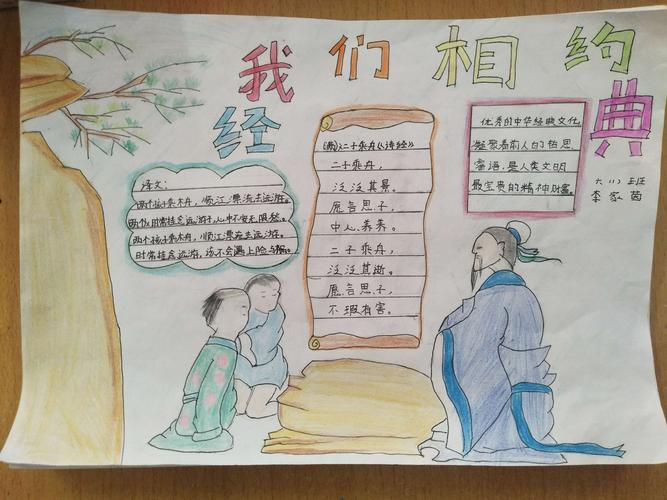 我们相约
经典
译文:
两个孩子乘木舟，顺江漂流去远游。
时常挂念远游子，心中不安无限愁。
两个孩子乘木舟，顺江漂流去远游。
时常挂念远游，该不会遇上险与祸。
《二子乘舟《诗经》
二子乘舟，
泛泛其景。
愿言思子，
中心养养。
二子乘舟，
泛泛其逝。
愿言思子，
不瑕有害。
优秀的中华经典文化
凝聚着前人的哲思
睿语，是人类文明
最宝贵的精神财富。
六(1)班
李家茵